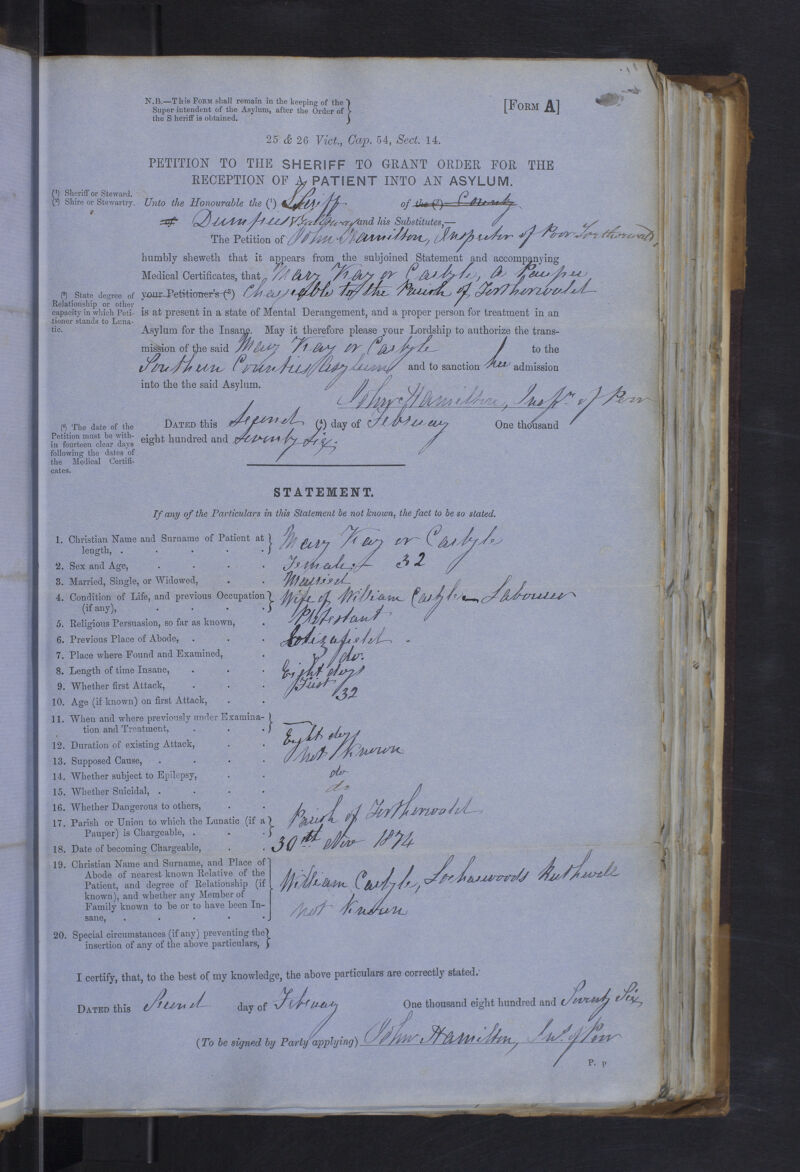 N.B.—This Form shall remain in the keeping of the
Superintendent of the Asylum, after the Order of
the Sheriff is obtained.
[Form A]
25 & 26 Vict., Cap. 54, Sect. 14.
PETITION TO THE SHERIFF TO GRANT ORDER FOR THE
RECEPTION OF A PATIENT INTO AN ASYLUM.
(¹) Sheriff or Steward.
(²) Shire or Stewartry.
Unto the Honourable the (¹) Sheriff of the (²) County
of Dumfries & Galloway and his Substitutes,—
The Petition of John Hamilton, Inspector of Poor Torthorwald,
humbly sheweth that it appears from the subjoined Statement and accompanying
Medical Certificates, that Mary Kay or Carlyle, a Pauper
(³) State degree of
Relationship or other
capacity in which Peti-
tioner stands to Luna-
tic.
your Petitioner's (³) Chargeable to the Parish of Torthorwald
is at present in a state of Mental Derangement, and a proper person for treatment in an
Asylum for the Insane. May it therefore please your Lordship to authorize the trans-
mission of the said Mary Kay or Carlyle to the
Southern Counties Asylum and to sanction her admission
into the the said Asylum.
John Hamilton, Inspr of Poor
(⁴) The date of the
Petition must be with-
in fourteen clear days
following the dates of
the Medical Certifi-
cates.
Dated this Second (⁴) day of February One thousand
eight hundred and Seventy Six.
STATEMENT.
If any of the Particulars in this Statement be not known, the fact to be so stated.
1. Christian Name and Surname of Patient at
length, . . . . . Mary Kay or Carlyle
2. Sex and Age, . . . . Female 32
3. Married, Single, or Widowed, . . Married
4. Condition of Life, and previous Occupation
(if any), . . . . Wife of William Carlyle Labourer
5. Religious Persuasion, so far as known, . Protestant
6. Previous Place of Abode, . . .
7. Place where Found and Examined, . do.
8. Length of time Insane, . . . Eight days
9. Whether first Attack, . . . First
10. Age (if known) on first Attack, . . 32
11. When and where previously under Examina-
tion and Treatment, . . . —
12. Duration of existing Attack, . . Eight days
13. Supposed Cause, . . . . Not Known
14. Whether subject to Epilepsy, . . do
15. Whether Suicidal, . . . . do
16. Whether Dangerous to others, . .
17. Parish or Union to which the Lunatic (if a
Pauper) is Chargeable, . . . Parish of Torthorwald
18. Date of becoming Chargeable, . . 30th Nov 1874
19. Christian Name and Surname, and Place of
Abode of nearest known Relative of the
Patient, and degree of Relationship (if
known), and whether any Member of
Family known to be or to have been In-
sane, . . . . .
William Carlyle, Ruthwell
Not Known
20. Special circumstances (if any) preventing the
insertion of any of the above particulars,
I certify, that, to the best of my knowledge, the above particulars are correctly stated.
Dated this Second day of February One thousand eight hundred and Seventy Six
(To be signed by Party applying) John Hamilton, Ins. of Poor
P. p